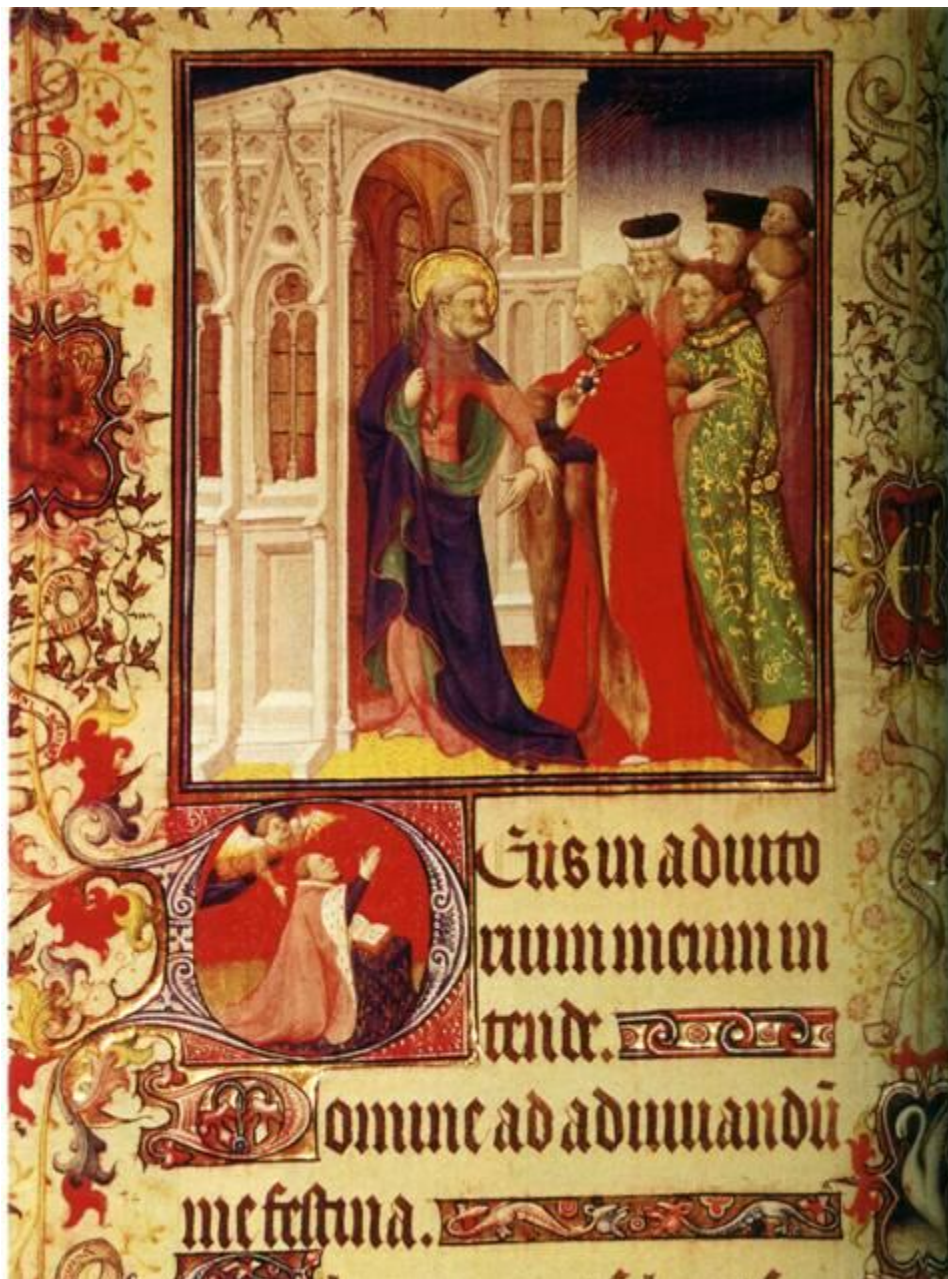 DEus in adiuto
rium meum in
tende.
Domine ad adiuuandū
me festina.